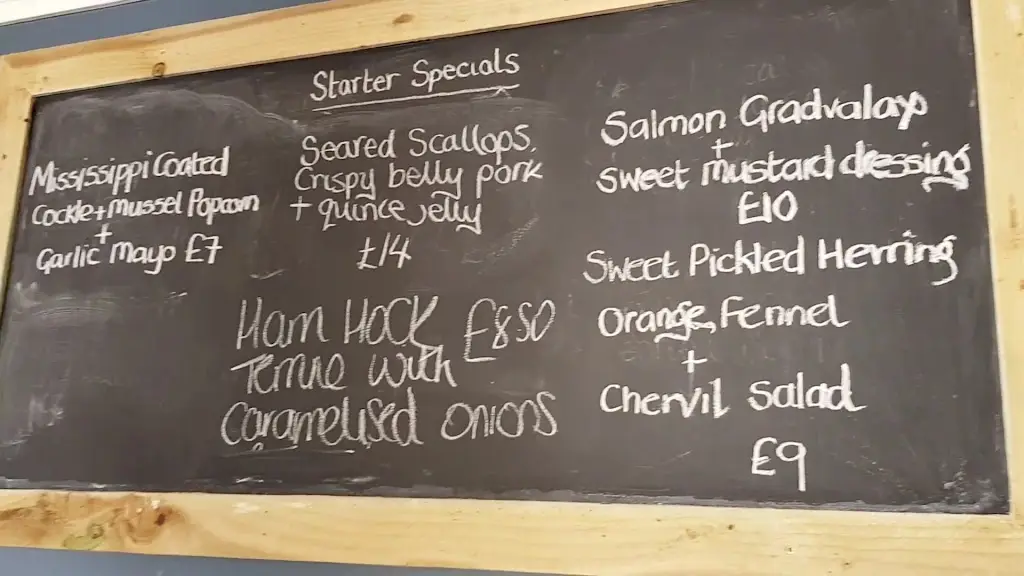 Starter Specials
Mississippi Coated
Cockle + Mussel Popcorn
+
Garlic Mayo £7
Seared Scallops,
Crispy belly pork
+ quince jelly
£14
Ham Hock £850
Terrine with
Caramelised onions
Salmon Gradvalax
+
Sweet mustard dressing
£10
Sweet Pickled Herring
Orange, Fennel
+
Chervil Salad
£9